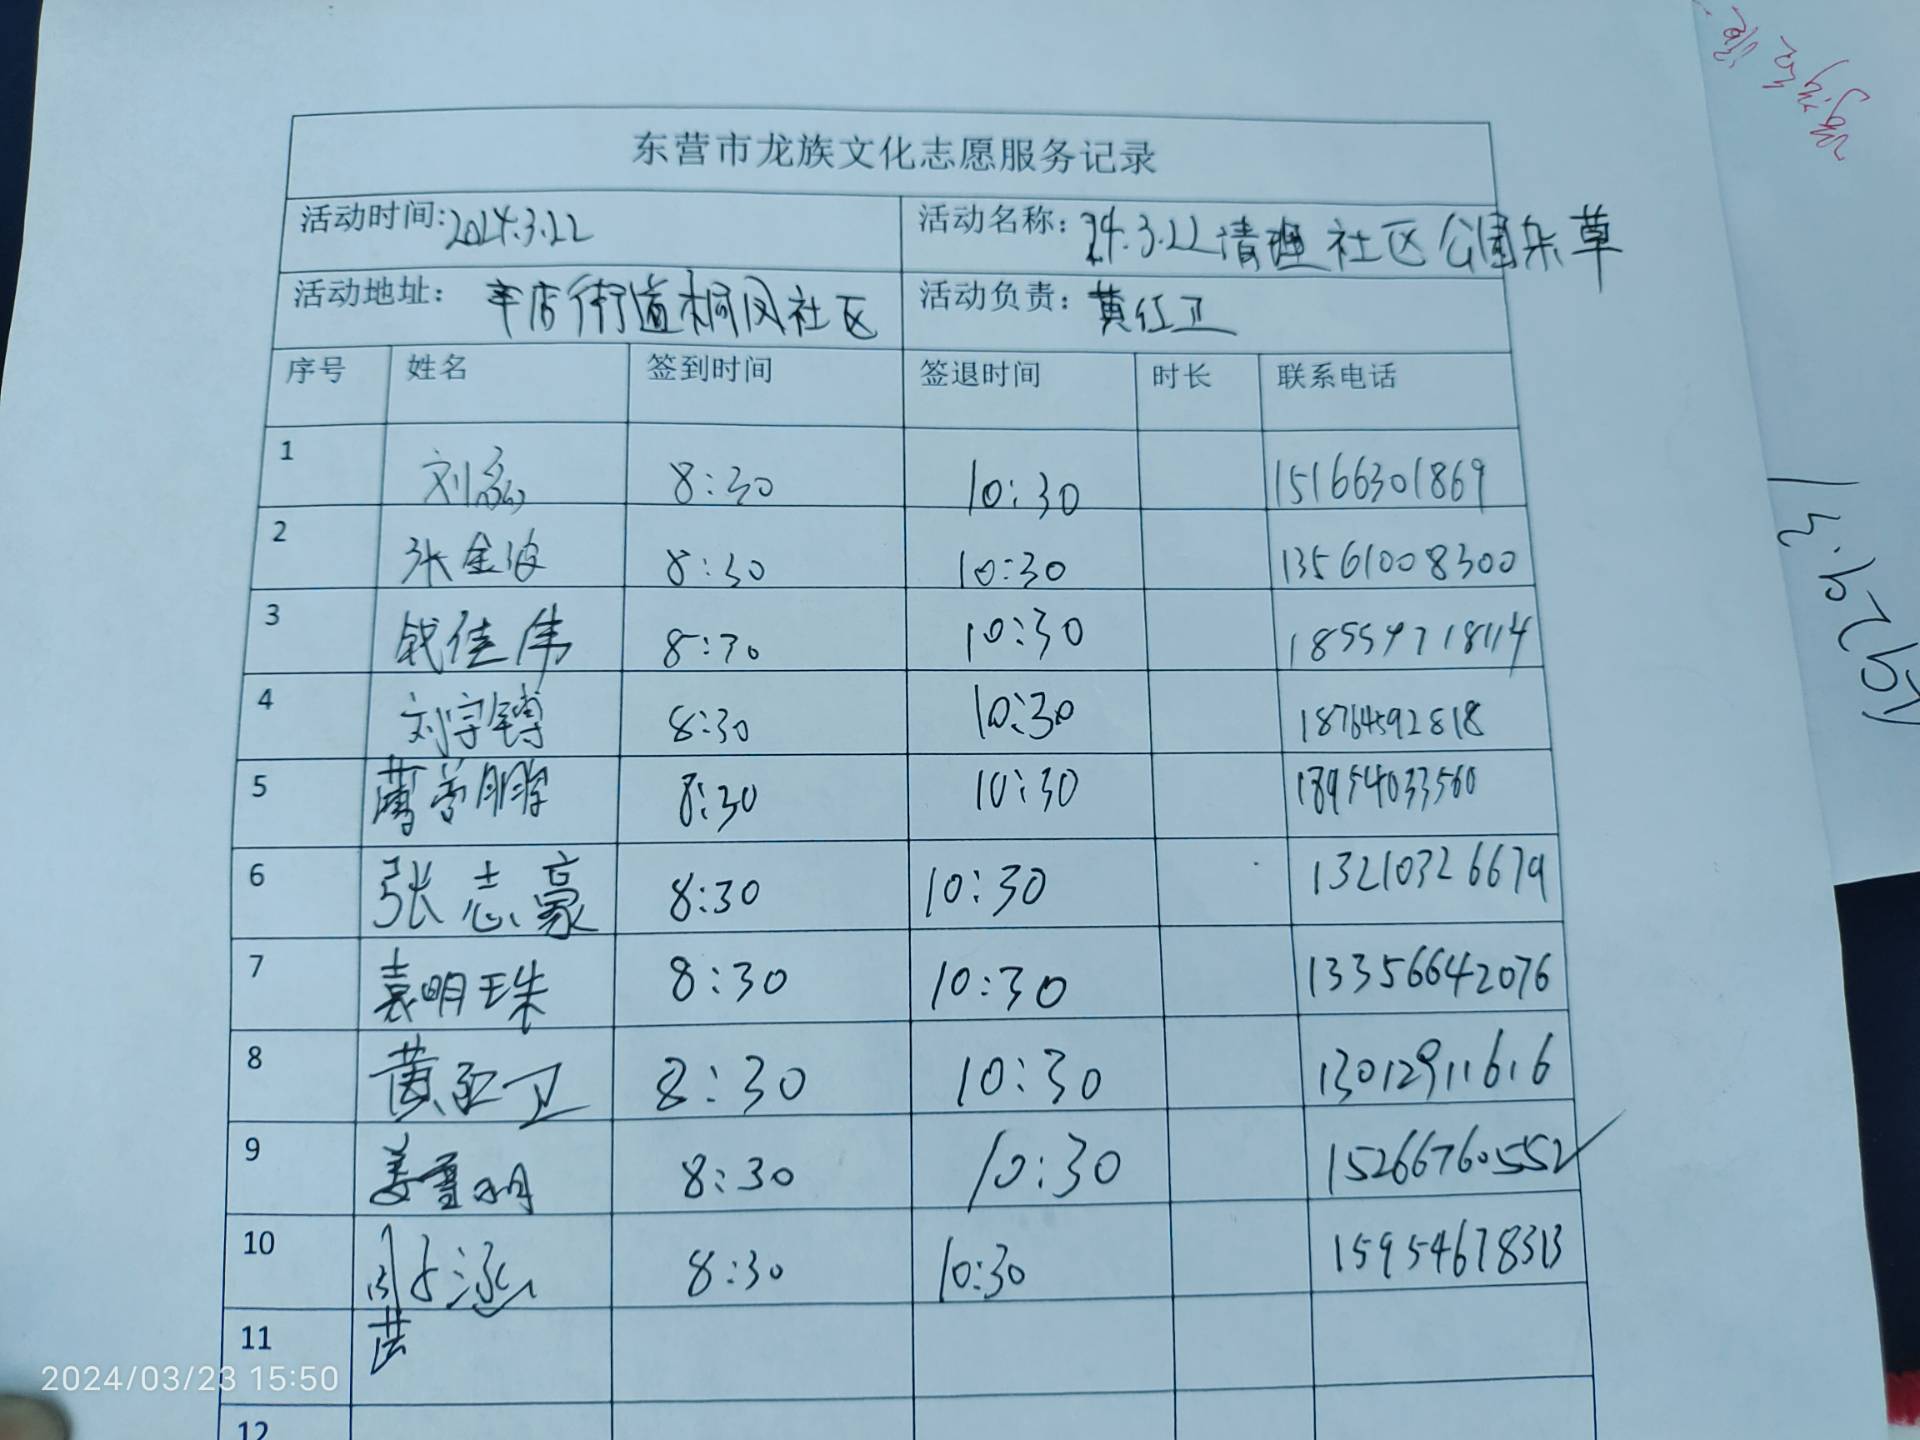 东营市龙族文化志愿服务记录
活动时间:2024.3.22 活动名称: 24.3.22清理社区公园杂草
活动地址: 辛店街道桐风社区 活动负责: 黄红卫
序号 姓名 签到时间 签退时间 时长 联系电话
1 刘 8:30 10:30 15166301869
2 张金波 8:30 10:30 13561008300
3 钱佳伟 8:30 10:30 18559718114
4 刘宇镈 8:30 10:30 18764592818
5 鹏 8:30 10:30 18954033560
6 张志豪 8:30 10:30 13210326679
7 袁明珠 8:30 10:30 13356642076
8 黄红卫 8:30 10:30 13012911616
9 姜雪明 8:30 10:30 15266760552
10 周子涵 8:30 10:30 15954678313
11
12
2024/03/23 15:50